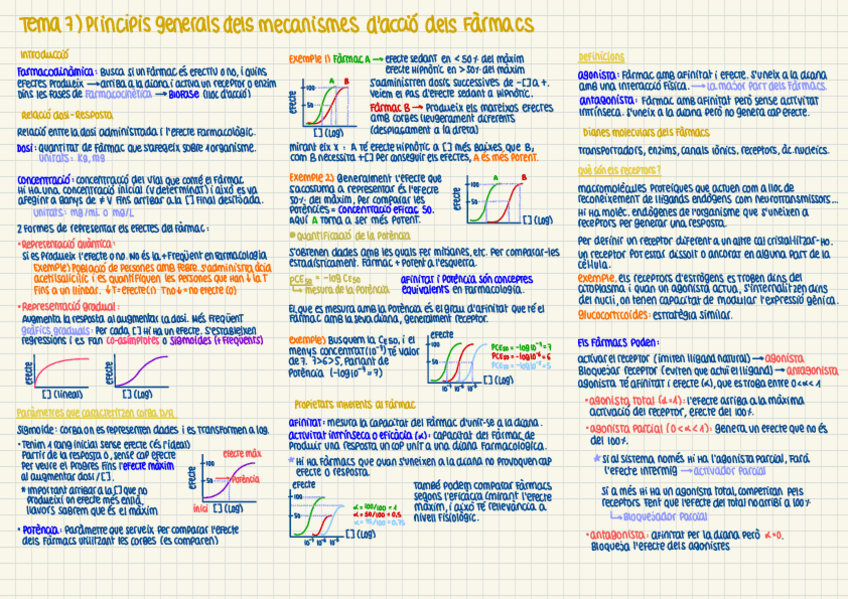 Tema 7) Principis generals dels mecanismes d'acció dels Fàrmacs
Introducció
Farmacodinàmica: Busca si un Fàrmac és efectiu o no, i quins
efectes Produeix → arriba a la diana i activa un receptor o enzim
Dins les fases de Farmacocinètica → BioFase (lloc d'acció)
Relació dosi-Resposta
Relació entre la dosi administrada i l'efecte Farmacològic.
Dosi: quantitat de Fàrmac que s'afegeix sobre 1 organisme.
Unitats: Kg, mg
Concentració: concentració del vial que conté el Fàrmac
Hi ha una concentració inicial (V determinat) i això es va
afegint a banys de ≠ V Fins arribar a la [] Final desitjada.
Unitats: mg/mL o mg/L
2 Formes de representar els efectes del Fàrmac:
• Representació quàntica:
Si es Produeix l'efecte o no. No és la + Freqüent en Farmacologia
Exemple) Població de Persones amb Febre. S'administra àcid
acetilsalicílic i es quantifiquen les Persones que Han ↓ la T
Fins a un llindar. ↓T = efecte (1) T no ↓ = no efecte (0)
• Representació gradual:
Augmenta la resposta al augmentar la dosi. Més Freqüent
gràfics graduals: Per cada, [] Hi ha un efecte. S'estableixen
regressions i es Fan co-asimptotes o sigmoides (+ Freqüents)
efecte
[] (lineal)
efecte
[] (Log)
Paràmetres que caracteritzen corba D/R
Sigmoide: corba on es representen dades i es transformen a log.
• Tenim 1 rang inicial sense efecte (és l'ideal)
Partir de la resposta 0, sense cap efecte
Per veure el Progrés Fins l'efecte màxim
al augmentar dosi / [].
* Important arribar a la [] que no
Produeixi un efecte més enllà,
llavors sabrem que és el màxim
efecte
efecte màx
Potència
inici [] (Log)
• Potència: Paràmetre que serveix Per comparar l'efecte
dels Fàrmacs utilitzant les corbes (es comparen)
Exemple 1) Fàrmac A → efecte sedant en < 50% del màxim
efecte Hipnòtic en > 50% del màxim
efecte
100
50
A B
[] (Log)
S'administren dosis successives de -[] a +.
Veiem el Pas d'efecte sedant a Hipnòtic.
Fàrmac B → Produeix els mateixos efectes
amb corbes lleugerament diferents
(desplaçament a la dreta)
Mirant eix X: A té efecte Hipnòtic a [] més Baixes que B,
com B necessita +[] Per conseguir els efectes, A és més Potent.
Exemple 2) Generalment l'efecte que
s'acostuma a representar és l'efecte
50% del màxim, Per comparar les
Potències = Concentració eficaç 50.
Aquí A torna a ser més Potent.
efecte
100
50
A B
[] (Log)
* Quantificació de la Potència
S'obtenen dades amb les quals Fer mitjanes, etc. Per comparar-les
estadísticament. Fàrmac + Potent a l'esquerra.
PCE50 = -log CE50
→ mesura de la Potència
afinitat i Potència són conceptes
equivalents en Farmacologia.
El que es mesura amb la Potència és el grau d'afinitat que té el
Fàrmac amb la seva diana, generalment receptor.
Exemple) Busquem la CE50, i el
menys concentrat (10⁻⁷) té valor
de 7. 7>6>5, Parlant de
Potència (-log10⁻⁷=7)
efecte
100
50
10⁻⁷ 10⁻⁶ 10⁻⁵
[] (Log)
PCE50 = -log10⁻⁷ = 7
PCE50 = -log10⁻⁶ = 6
PCE50 = -log10⁻⁵ = 5
Propietats inherents al Fàrmac
Afinitat: mesura la capacitat del Fàrmac d'unir-se a la diana.
Activitat intrínseca o eficàcia (α): capacitat del Fàrmac de
Produir una resposta un cop unit a una diana Farmacològica.
* Hi ha Fàrmacs que quan s'uneixen a la diana no Provoquen cap
efecte o resposta.
efecte
100
50
α = 100/100 = 1
α = 50/100 = 0,5
α = 75/100 = 0,75
[] (Log)
També podem comparar Fàrmacs
segons l'eficàcia (mirant l'efecte
màxim, i això té rellevància a
nivell Fisiològic.
Definicions
agonista: Fàrmac amb afinitat i efecte. S'uneix a la diana
amb una interacció Física. → la major part dels Fàrmacs.
antagonista: Fàrmac amb afinitat Però sense activitat
intrínseca. S'uneix a la diana però no genera cap efecte.
Dianes moleculars dels Fàrmacs
Transportadors, enzims, canals iònics, receptors, àc. nucleics.
Què són els receptors?
Macromolècules Proteiques que actuen com a lloc de
reconeixement de lligands endògens com neurotransmissors...
Hi ha moléc. endògenes de l'organisme que s'uneixen a
receptors Per generar una resposta.
Per definir un receptor diferent a un altre cal cristal·litzar-ho.
Un receptor Pot estar dissolt o ancorat en alguna part de la
cèl·lula.
Exemple. els receptors d'estrògens es troben dins del
citoplasma i quan un agonista actua, s'internalitzen dins
del nucli, on tenen capacitat de modular l'expressió gènica.
Glucocorticoides: estratègia similar.
Els Fàrmacs Poden:
Activar el receptor (imiten lligand natural) → agonista
Bloquejar receptor (eviten que actuï el lligand) → antagonista
Agonista té afinitat i efecte (α), que es troba entre 0<α<1
• agonista total (α=1): l'efecte arriba a la màxima
activació del receptor, efecte del 100%.
• agonista parcial (0<α<1): genera un efecte que no és
del 100%.
* Si al sistema només Hi ha l'agonista parcial, Farà
l'efecte intermig → activador Parcial
Si a més Hi Ha un agonista total, competiran Pels
receptors Fent que l'efecte del total no arribi a 100%
→ Bloquejador Parcial
• antagonista: afinitat Per la diana Però α=0.
Bloqueja l'efecte dels agonistes